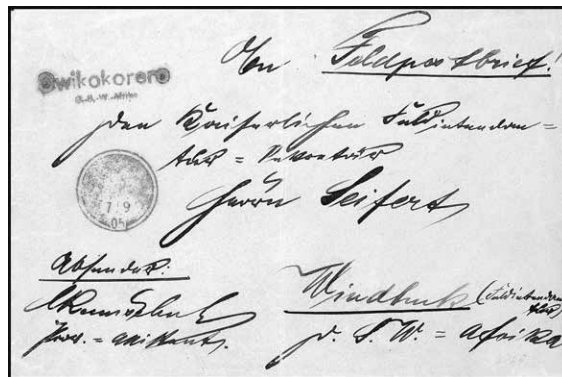 An Feldpostbrief!
Owikokorero
D.-S.-W.-Afrika
den Kaiserlichen Feldintendan=
tur = Sekretär
Herrn Seifert
7 9
05
Absender:
Windhuk (Feldintendan
tur)
Prov. = Assistent.
D. S. W. = Afrika